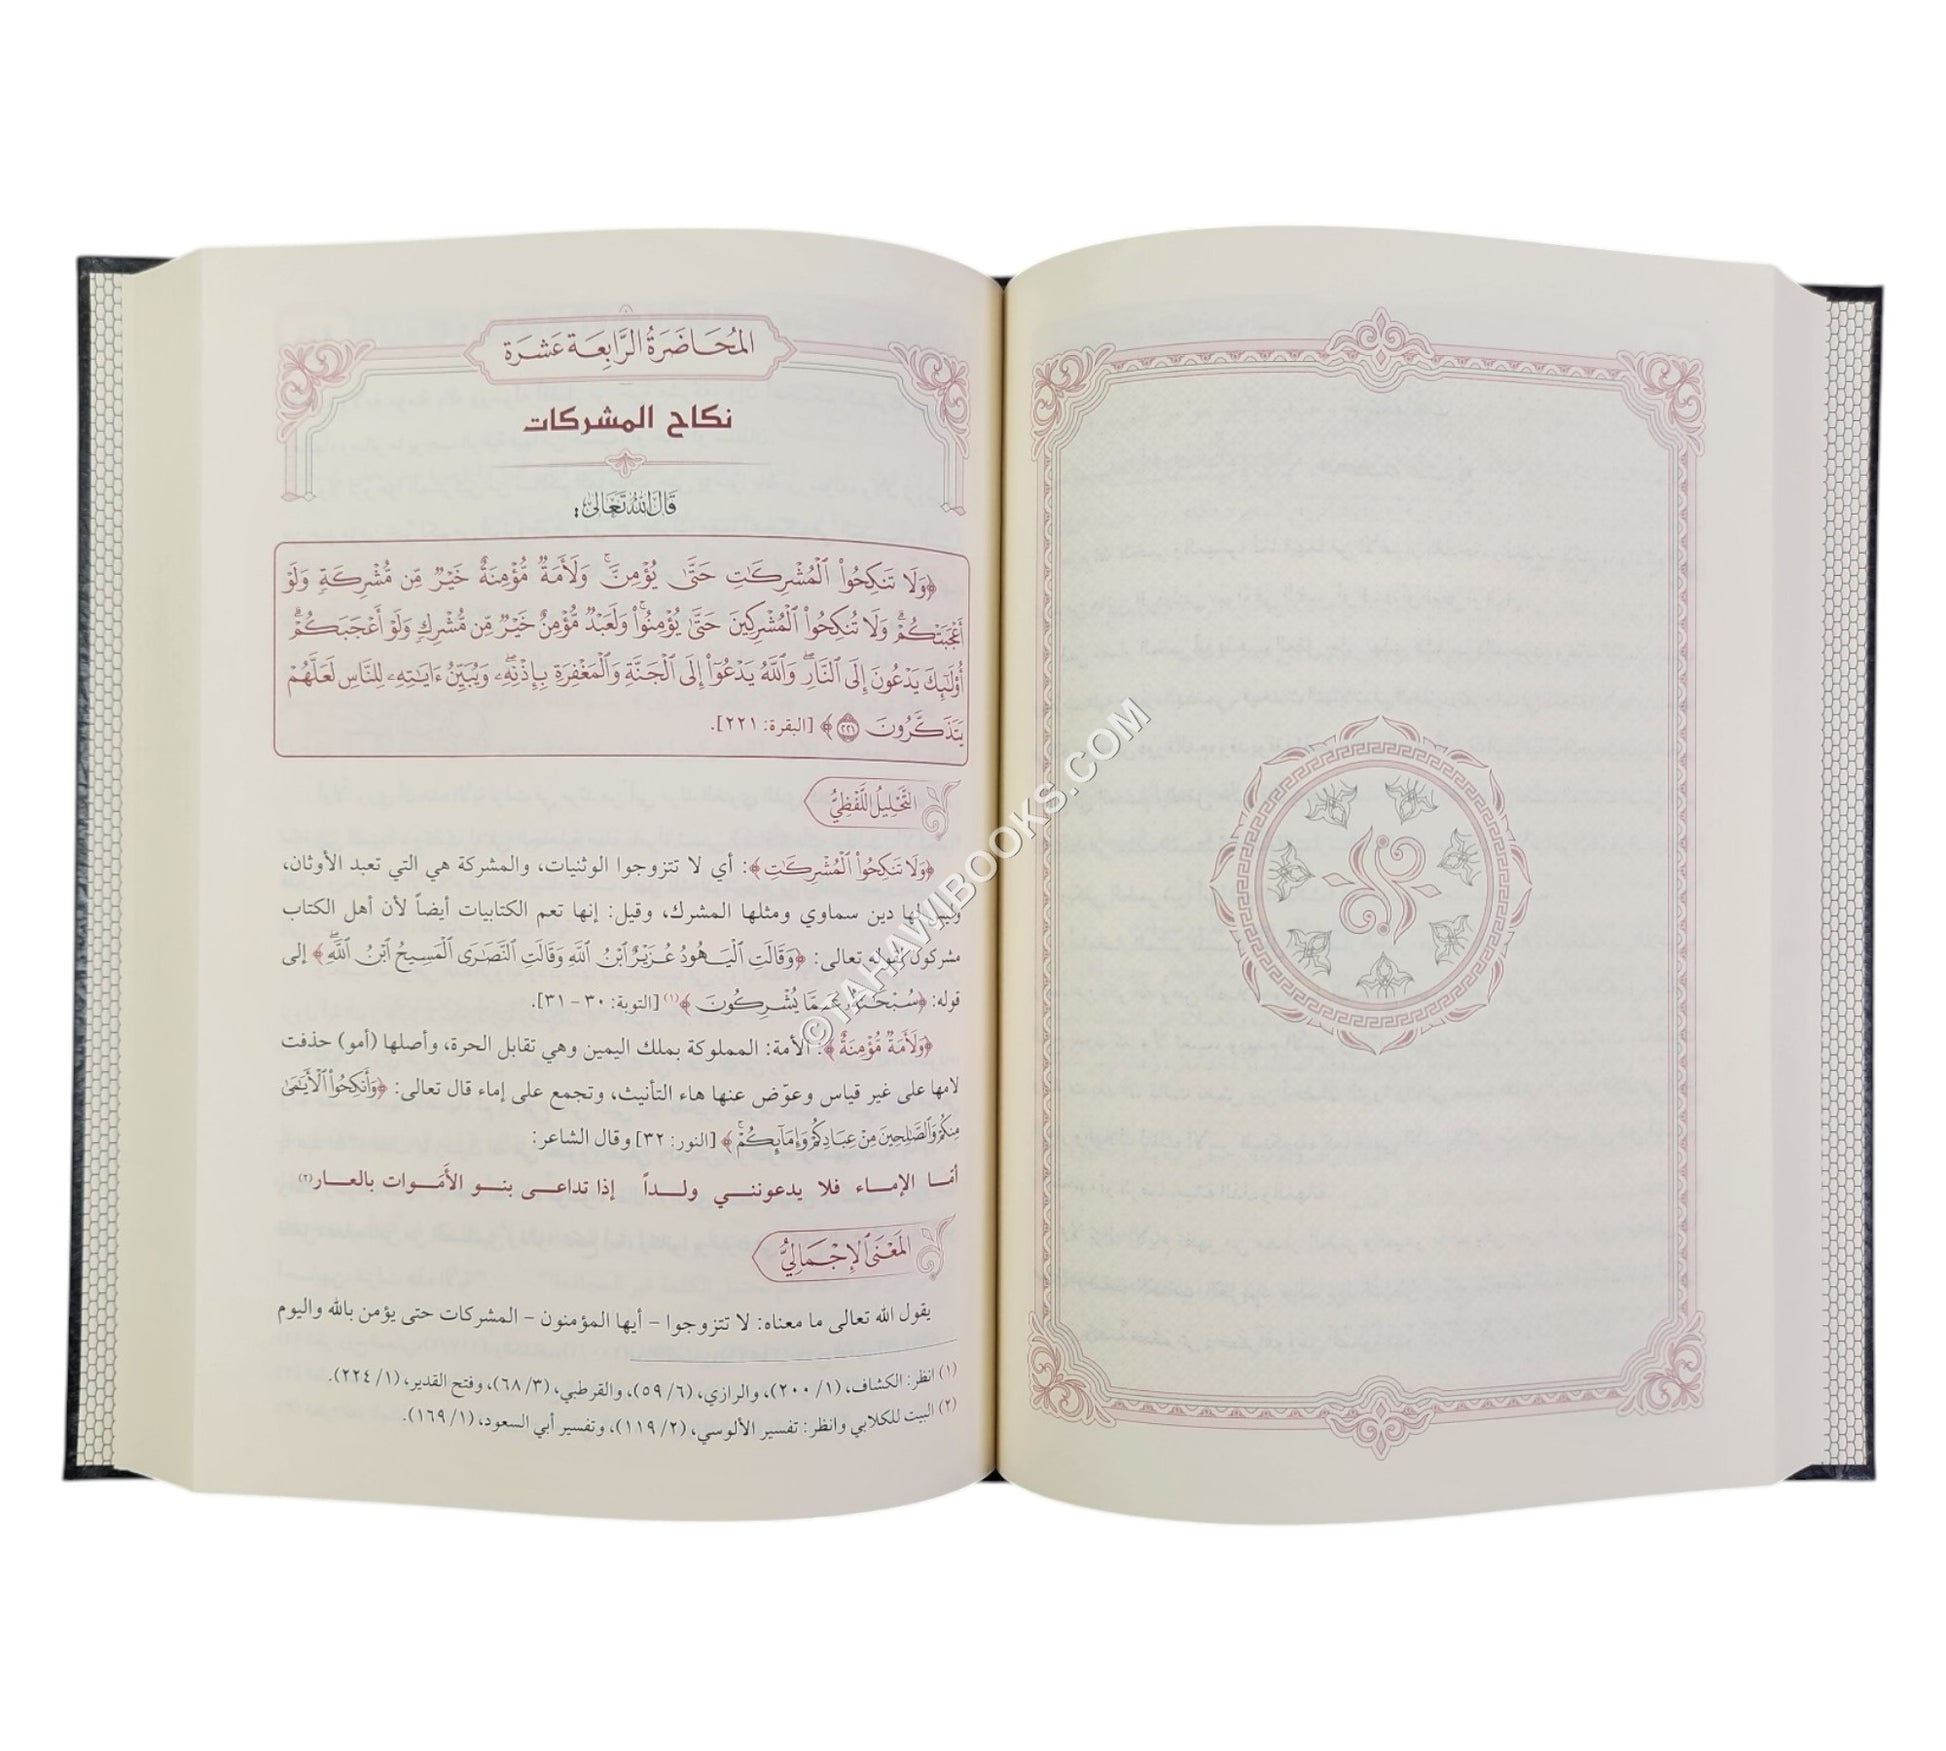 المُحَاضَرَةُ الرَّابِعَة عَشرَة
نكاح المشركات
قَالَ اللهُ تَعَالَى:
﴿وَلَا تَنكِحُواْ ٱلْمُشْرِكَٰتِ حَتَّىٰ يُؤْمِنَّۚ وَلَأَمَةٌ مُّؤْمِنَةٌ خَيْرٌ مِّن مُّشْرِكَةٍ وَلَوْ
أَعْجَبَتْكُمْۗ وَلَا تُنكِحُواْ ٱلْمُشْرِكِينَ حَتَّىٰ يُؤْمِنُواْۚ وَلَعَبْدٌ مُّؤْمِنٌ خَيْرٌ مِّن مُّشْرِكٍ وَلَوْ أَعْجَبَكُمْۗ
أُوْلَٰٓئِكَ يَدْعُونَ إِلَى ٱلنَّارِۖ وَٱللَّهُ يَدْعُوٓاْ إِلَى ٱلْجَنَّةِ وَٱلْمَغْفِرَةِ بِإِذْنِهِۦۖ وَيُبَيِّنُ ءَايَٰتِهِۦ لِلنَّاسِ لَعَلَّهُمْ
يَتَذَكَّرُونَ ٢٢١﴾ [البقرة: ٢٢١].
التَّحْلِيلُ اللَّفْظِيُّ
﴿وَلَا تَنكِحُواْ ٱلْمُشْرِكَٰتِ﴾: أي لا تتزوجوا الوثنيات، والمشركة هي التي تعبد الأوثان،
وليس لها دين سماوي ومثلها المشرك، وقيل: إنها تعم الكتابيات أيضاً لأن أهل الكتاب
مشركون لقوله تعالى: ﴿وَقَالَتِ ٱلْيَهُودُ عُزَيْرٌ ٱبْنُ ٱللَّهِ وَقَالَتِ ٱلنَّصَٰرَى ٱلْمَسِيحُ ٱبْنُ ٱللَّهِۖ﴾ إلى
قوله: ﴿سُبْحَٰنَهُۥ عَمَّا يُشْرِكُونَ﴾(١) [التوبة: ٣٠ - ٣١].
﴿وَلَأَمَةٌ مُّؤْمِنَةٌ﴾: الأمة: المملوكة بملك اليمين وهي تقابل الحرة، وأصلها (أمو) حذفت
لامها على غير قياس وعوّض عنها هاء التأنيث، وتجمع على إماء قال تعالى: ﴿وَأَنكِحُواْ ٱلْأَيَٰمَىٰ
مِنكُمْ وَٱلصَّٰلِحِينَ مِنْ عِبَادِكُمْ وَإِمَآئِكُمْۚ﴾ [النور: ٣٢] وقال الشاعر:
أمّا الإماء فلا يدعونني ولداً إذا تداعى بنو الأَمَوات بالعار(٢)
المَعْنَى الإِجْمَالِيُّ
يقول الله تعالى ما معناه: لا تتزوجوا - أيها المؤمنون - المشركات حتى يؤمن بالله واليوم
(١) انظر: الكشاف، (١/ ٢٠٠)، والرازي، (٦/ ٥٩)، والقرطبي، (٣/ ٦٨)، وفتح القدير، (١/ ٢٢٤).
(٢) البيت للكلابي وانظر: تفسير الألوسي، (٢/ ١١٩)، وتفسير أبي السعود، (١/ ١٦٩).
©TAHAWIBOOKS.COM